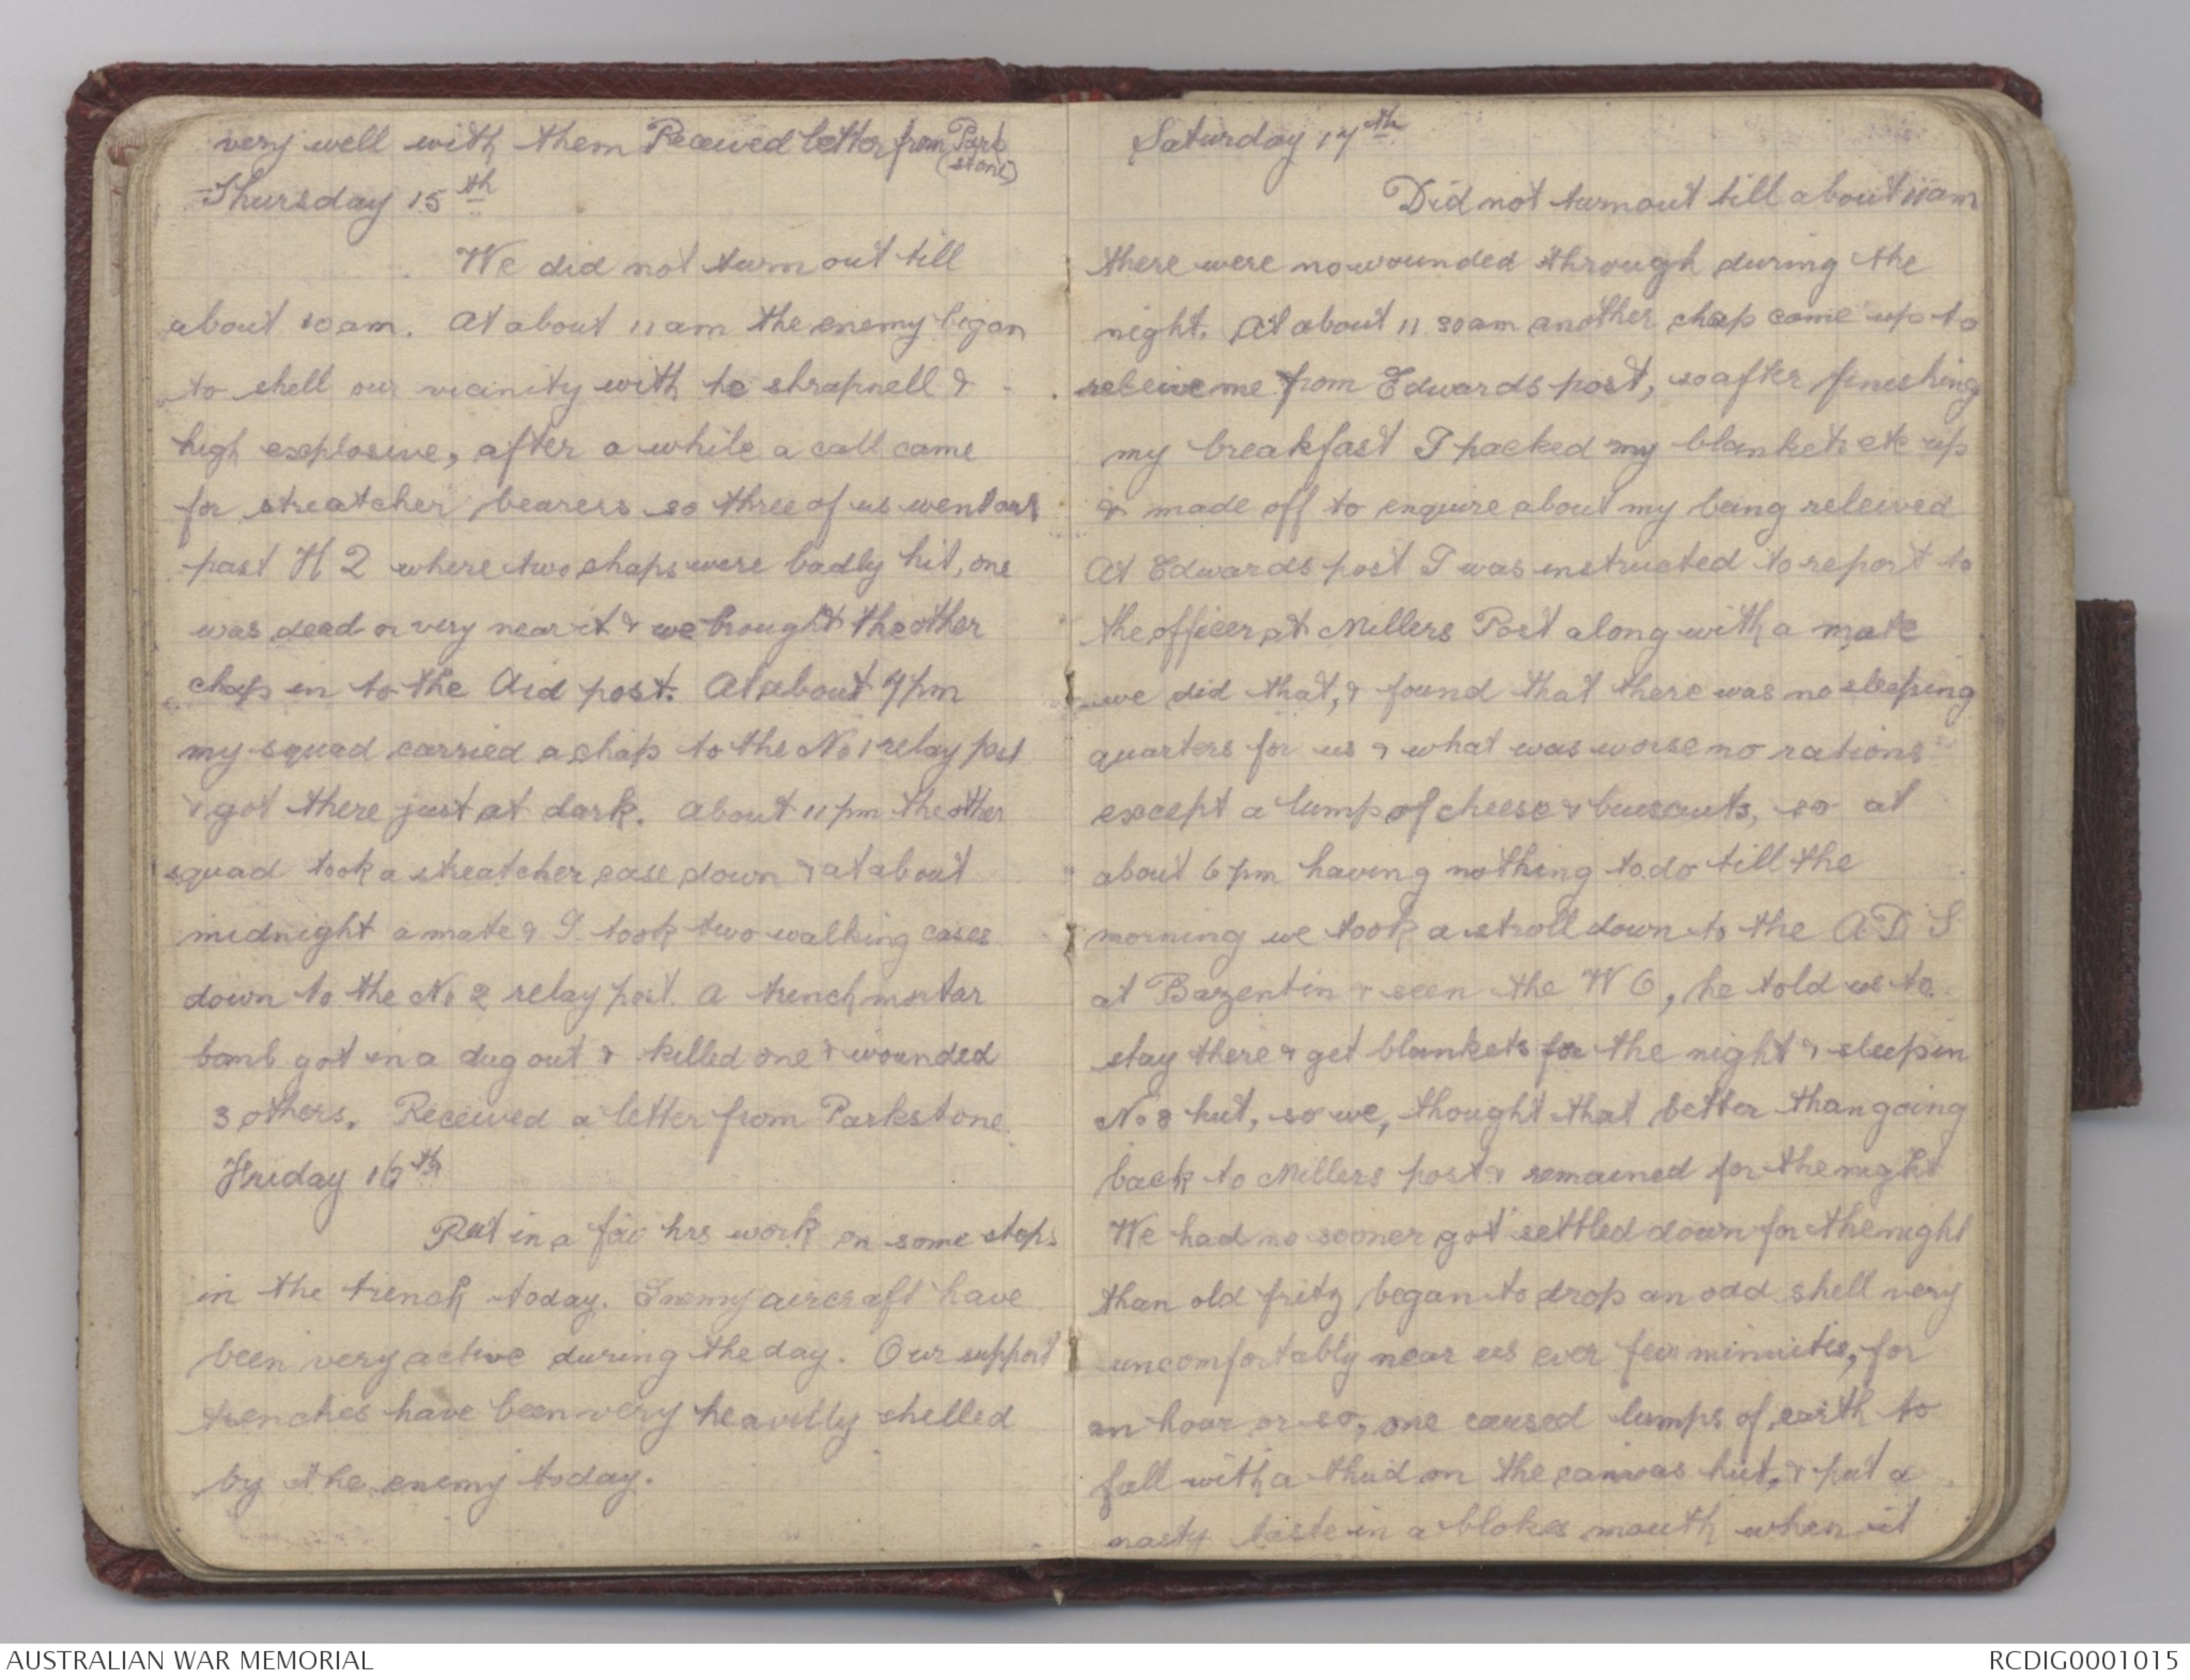 very well with them Received letter from Park
(stone)
Thursday 15th
We did not turn out till
about 10 am. At about 11 am the enemy began
to shell our vicinity with he shrapnell &
high explosive, after a while a call came
for streatcher bearers so three of us went out
past H 2 where two chaps were badly hit, one
was dead or very near it & we brought the other
chap in to the Aid post. At about 7 pm
my squad carried a chap to the No 1 relay post
& got there just at dark. About 11 pm the other
squad took a streatcher case down & at about
midnight a mate & I took two walking cases
down to the No 2 relay post. A trench mortar
bomb got in a dug out & killed one & wounded
3 others. Received a letter from Parkstone.
Friday 16th
Put in a few hrs work on some steps
in the trench today. Enemy aircraft have
been very active during the day. Our support
trenches have been very heavilly shelled
by the enemy today.
Saturday 17th
Did not turn out till about 11 am
there were no wounded through during the
night. At about 11 30 am another chap came up to
releive me from Edwards post, so after fineshing
my breakfast I packed my blankets etc up
& made off to enquire about my being releived
At Edwards post I was instructed to report to
the officer at Millers Post along with a mate
we did that, & found that there was no sleeping
quarters for us & what was worse no rations
except a lump of cheese & buscuits, so at
about 6 pm having nothing to do till the
morning we took a stroll down to the A D S
at Bazentin & seen the W O, he told us to
stay there & get blankets for the night & sleep in
No 8 hut, so we, thought that better than going
back to Millers post & remained for the night
We had no sooner got settled down for the night
than old fritz began to drop an odd shell very
uncomfortably near us ever few minuites, for
an hour or so, one caused lumps of earth to
fall with a thud on the canvas hut, & put a
nasty taste in a blokes mouth when it